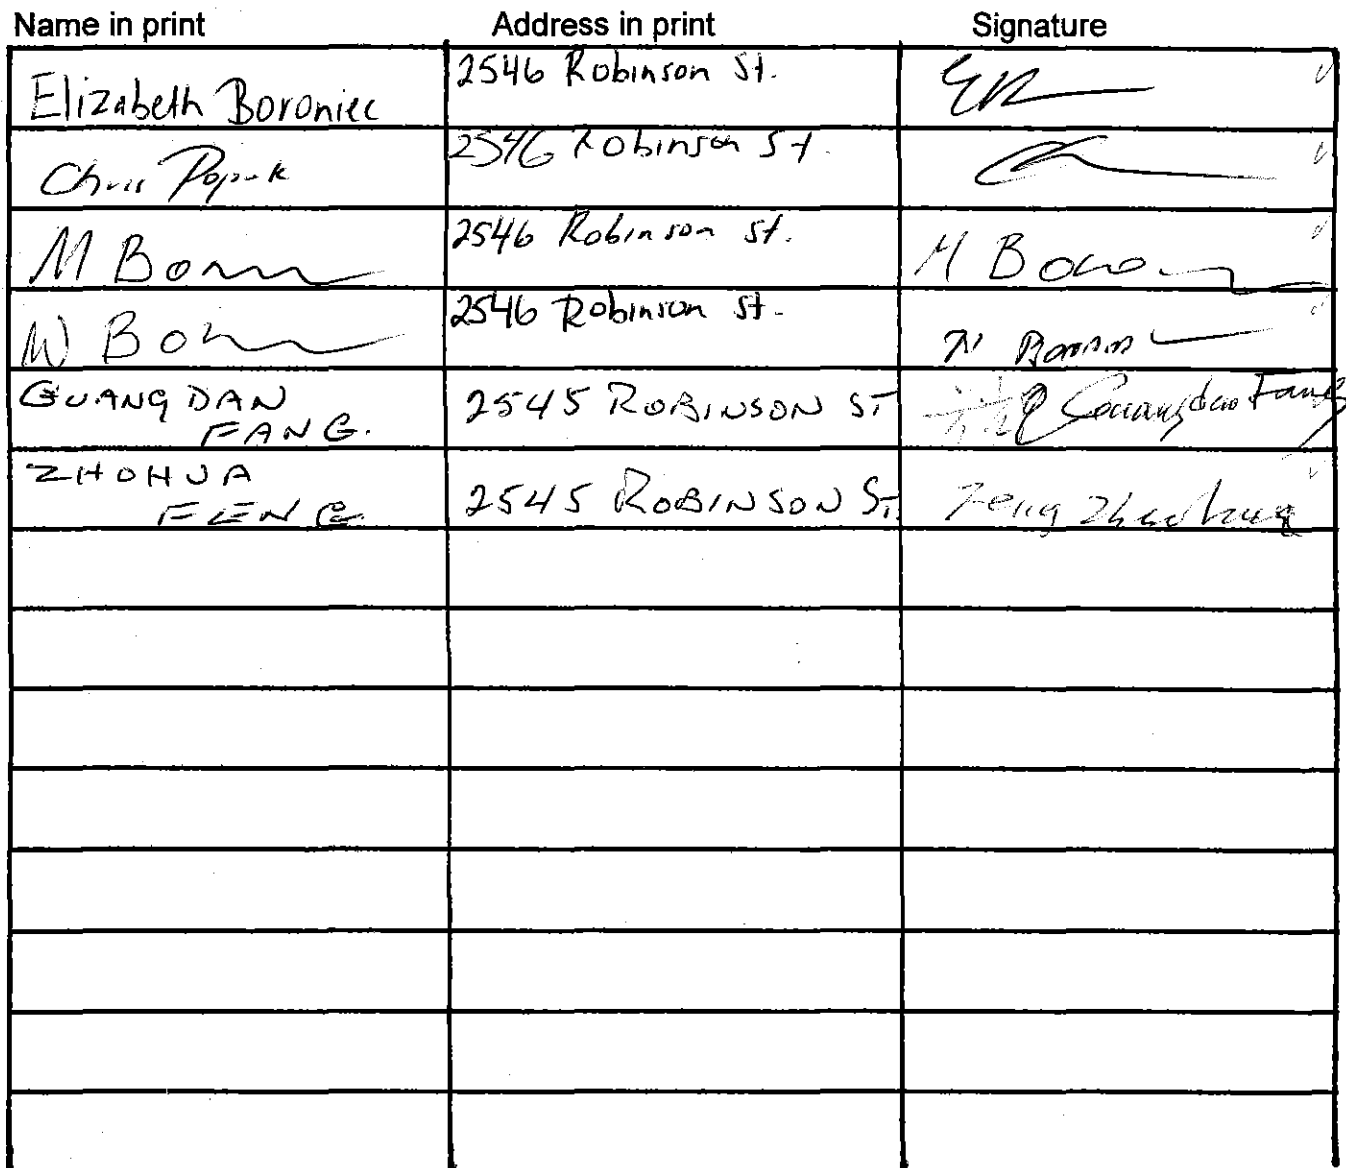 Name in print Address in print Signature
Elizabeth Boroniec 2546 Robinson St.
Chris Popek 2546 Robinson St.
M 2546 Robinson St. M
2546 Robinson St.
GUANG DAN
FANG. 2545 ROBINSON ST Fang
ZHOHUA
FENG 2545 ROBINSON ST. Feng Zhaohua